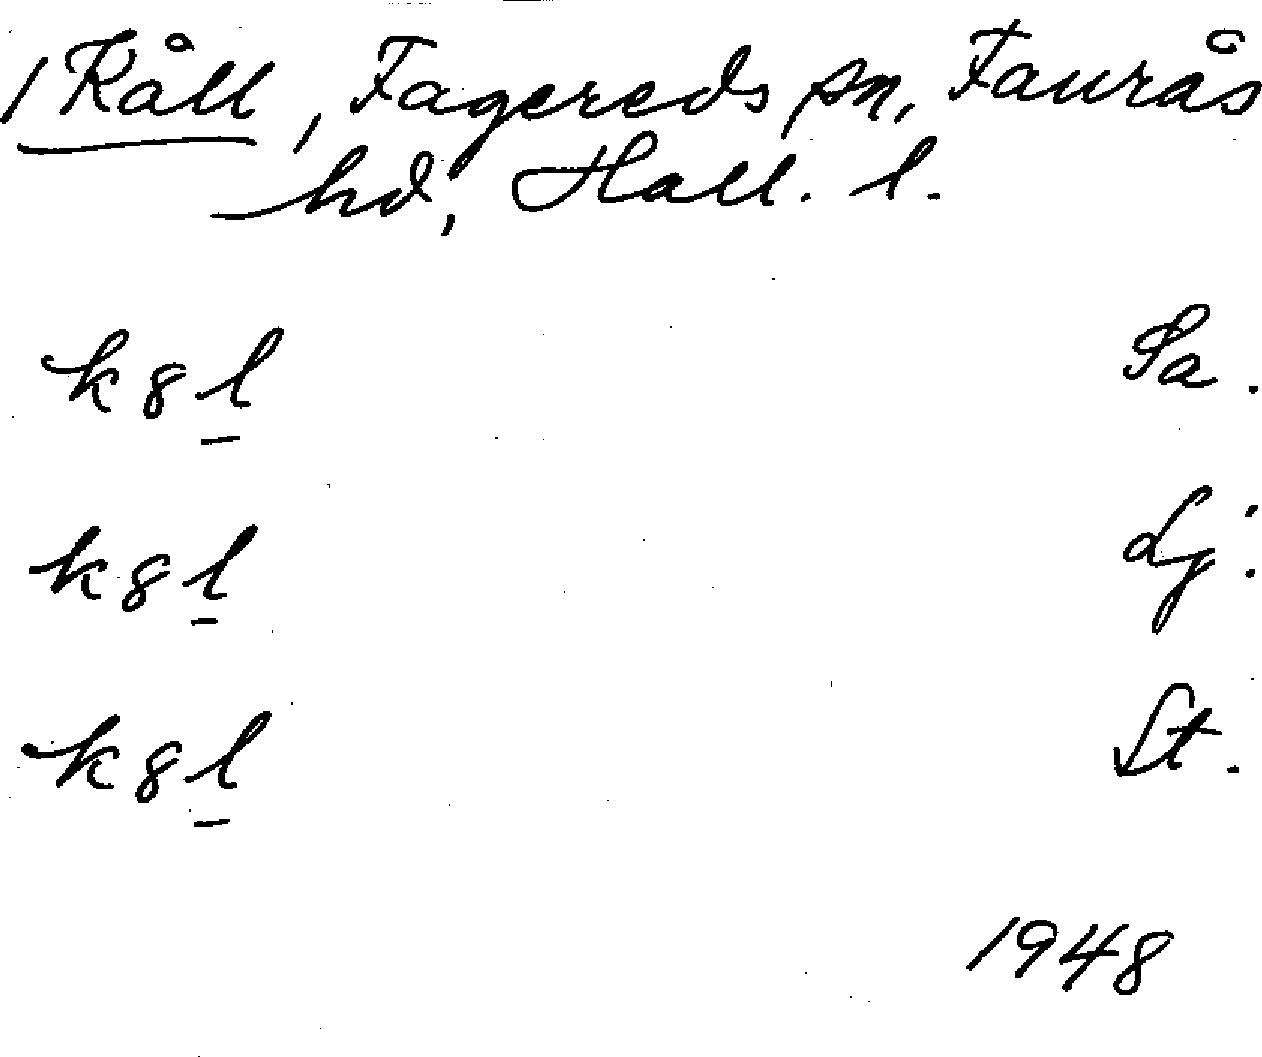 1 Råll, Fagereds sn, Faurås
hd, Hall. l.
k8l Sa.
k8l Lj.
k8l St.
1948